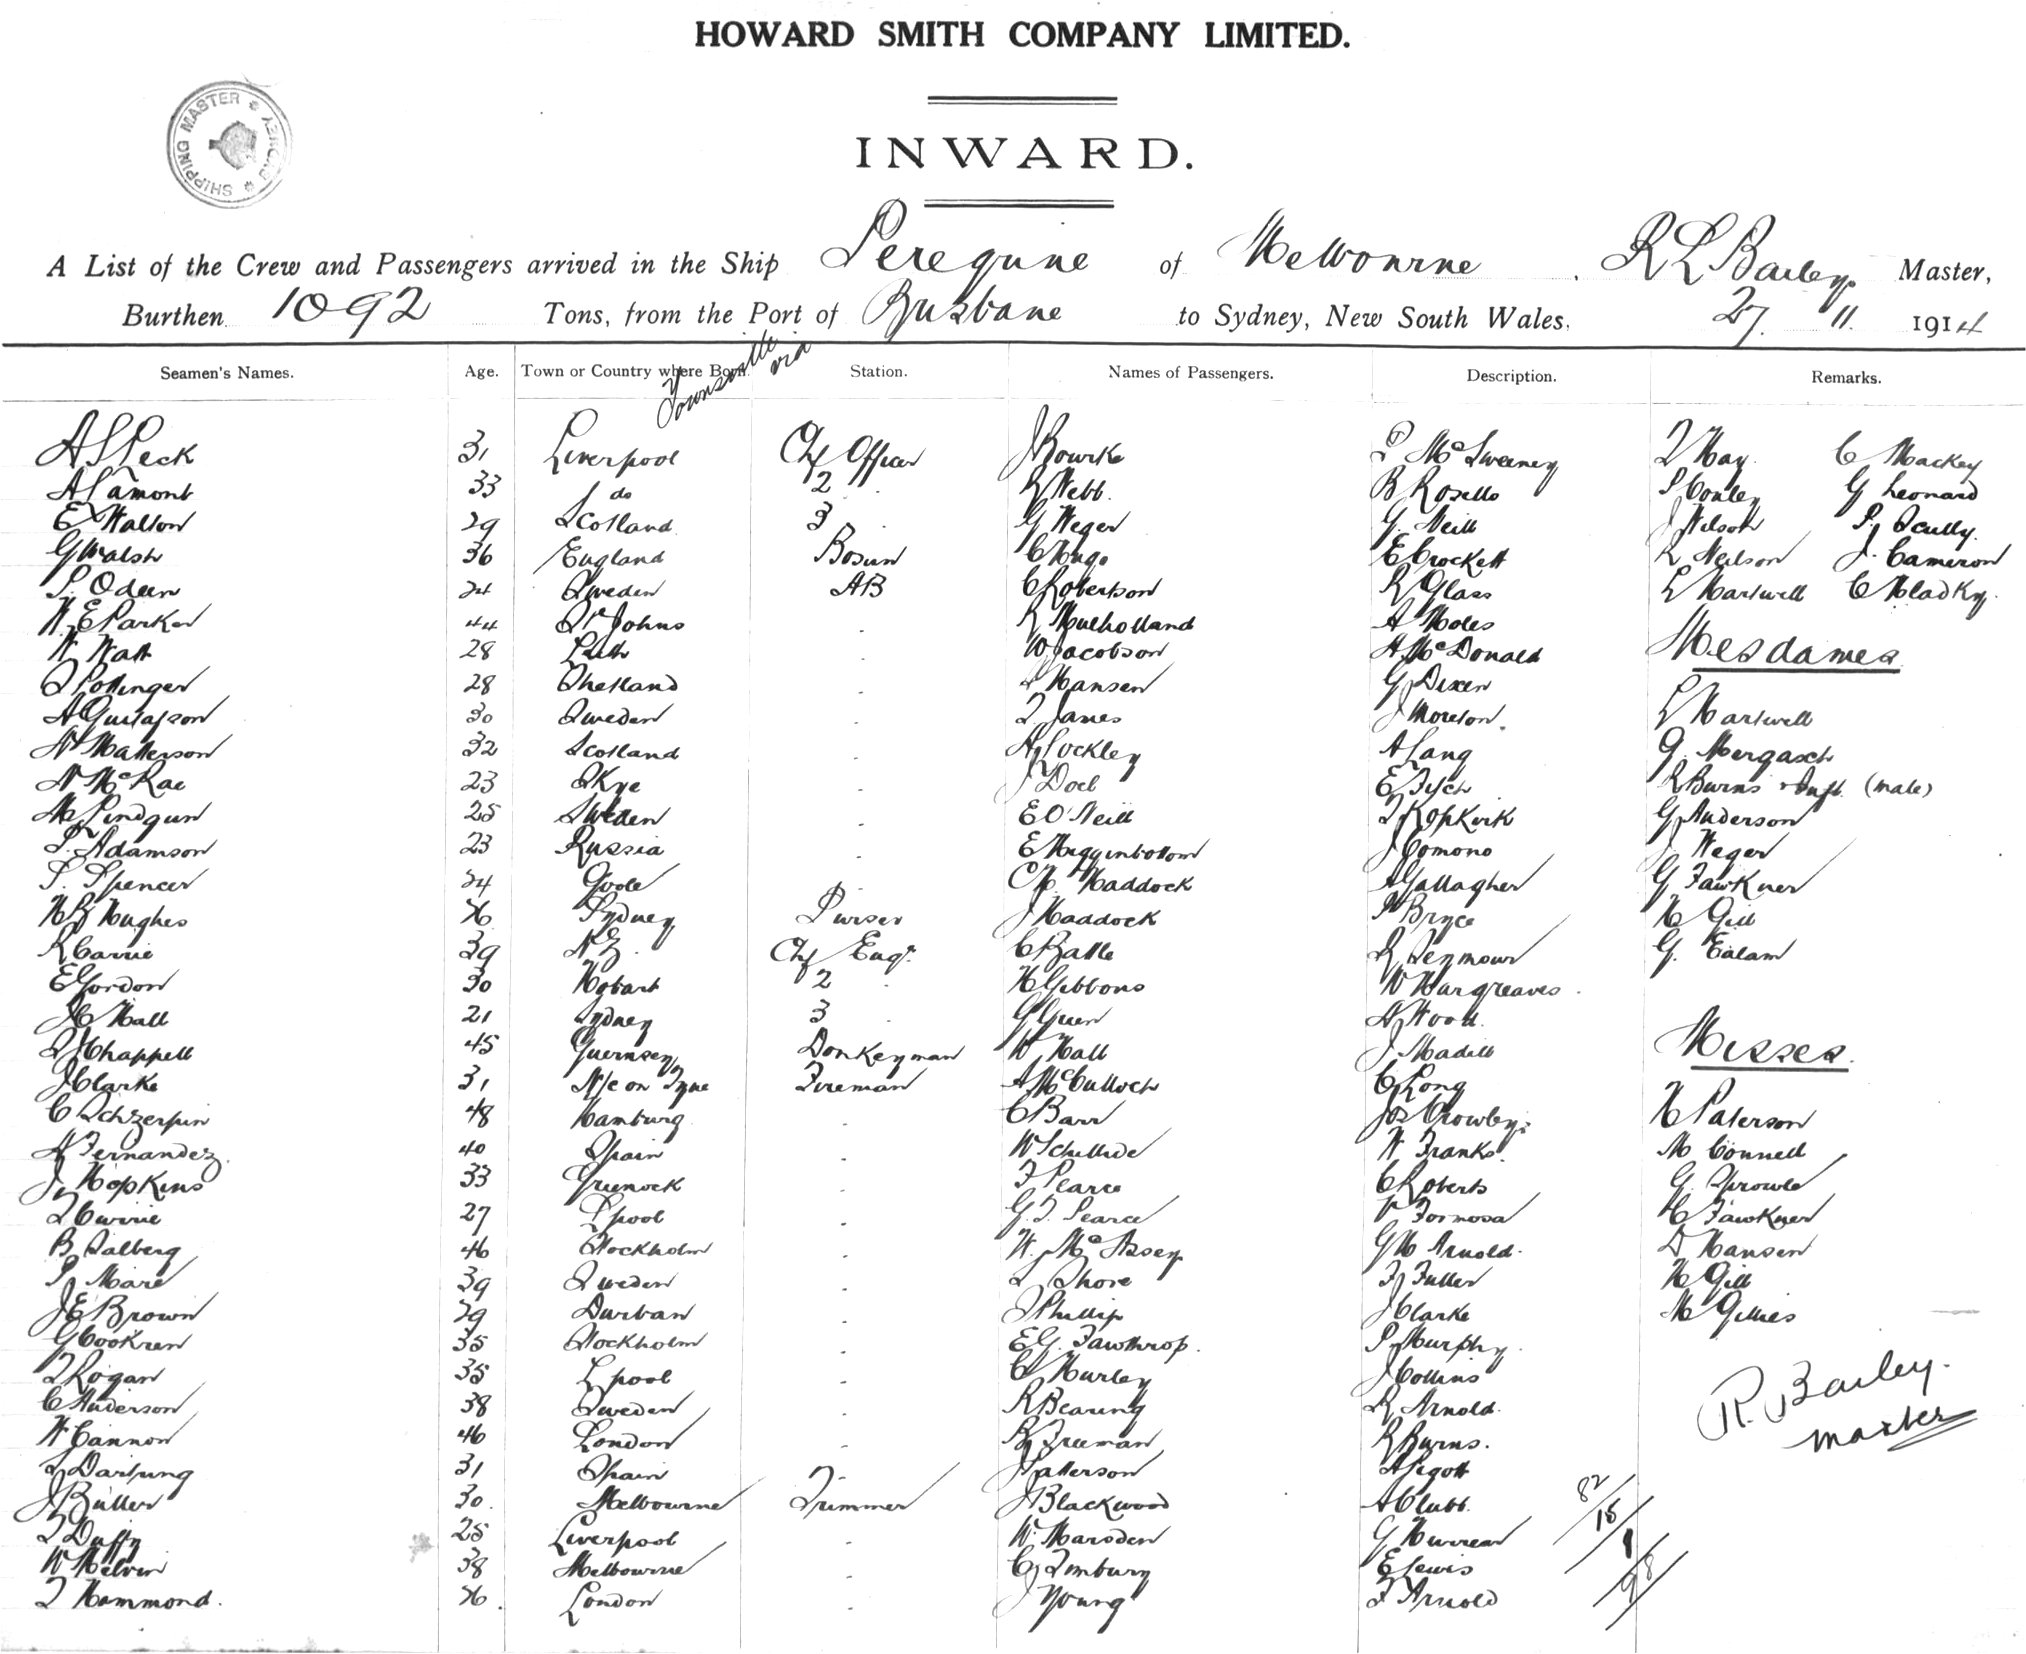 HOWARD SMITH COMPANY LIMITED.
SHIPPING MASTER SYDNEY
INWARD.
A List of the Crew and Passengers arrived in the Ship Peregrine of Melbourne R L Bailey Master,
Burthen 1092 Tons, from the Port of Brisbane to Sydney, New South Wales, 27. 11. 1914
Townsville via
Seamen's Names. Age. Town or Country where Born. Station. Names of Passengers. Description. Remarks.
A S Peck 31 Liverpool Chf Officer J Rourke P McSweeney T May. C Mackey
A Lamont 33 do 2 R Webb. B Rosello P Conley G Leonard
E Walton 29 Scotland 3 G Weger G. Neill J Wilson P. Scully.
G Walsh 36 England Bosun C Hugo E Crockett R Neilson J. Cameron
S. Odeen 24 Sweden AB C Robertson R Glass L Hartwell C Hladky.
W. E Parker 44 St Johns R Mulholland A Moles
W. Watt 28 Leith W Jacobson A McDonald Mesdames
T Pottinger 28 Shetland Hansen G Dixen
A Gustafson 30 Sweden T Janes J Moreton. L Hartwell
W Matterson 32 Scotland A Lockley A Lang G. Mergasch
N McRae 23 Skye J Doel E Tysch R Burns & Inft. (male)
M Lindgun 25 Sweden E O'Neill T Kopkirk G Anderson
Adamson 23 Russia E Higginbottom J Comono J Weger
S. Spencer 24 Goole C H. Haddock A Gallagher G Fawkner
H B Hughes 36 Sydney Purser J Haddock P Bryce H Gill
R Carrie 39 N Z. Chf Engr. C Batte R Seymour G. Ealam
E Gordon 30 Hobart 2 H Gibbons W Hargreaves.
J C Hall 21 Sydney 3 G Green A Wood.
T J Chappell 45 Guernsey Donkeyman W Hall J Madill Misses.
J Clarke 31 N/c on Tyne Fireman A McCulloch C Long
C Schzerpin 48 Hamburg C Barr Jos Crowley. H Paterson
A Fernandez. 40 Spain W W Franks. M Connell
J Hopkins 33 Greenock F Pearce C Roberts G. Sprowle
T Currie 27 Lpool G. F. Pearce P Formosa C Fawkner
B Salberg 46 Stockholm W. McAssey G H Arnold. D Hansen
P Mare 39 Sweden Shore F Fuller H Gill
J E Brown 29 Durban J Phillip J Clarke M Gillies
G Cookren 35 Stockholm E G. Fawthrop. P Murphy.
T Rogan 35 Lpool C Hurley J Collins R. Bailey.
C Anderson 38 Sweden R Bearing R Arnold. master
W Cannon 46 London R Freeman R Burns.
L Dartung 31 Spain J Patterson A Pegott
J Butler 30. Melbourne Trimmer J Blackwood A Clubb. 82
T Duffy 25 Liverpool W. Marsden G Murrean 15
W Melvin 38 Melbourne C Timbury E Lewis 1
T Hammond. 36. London J Young F Arnold 98